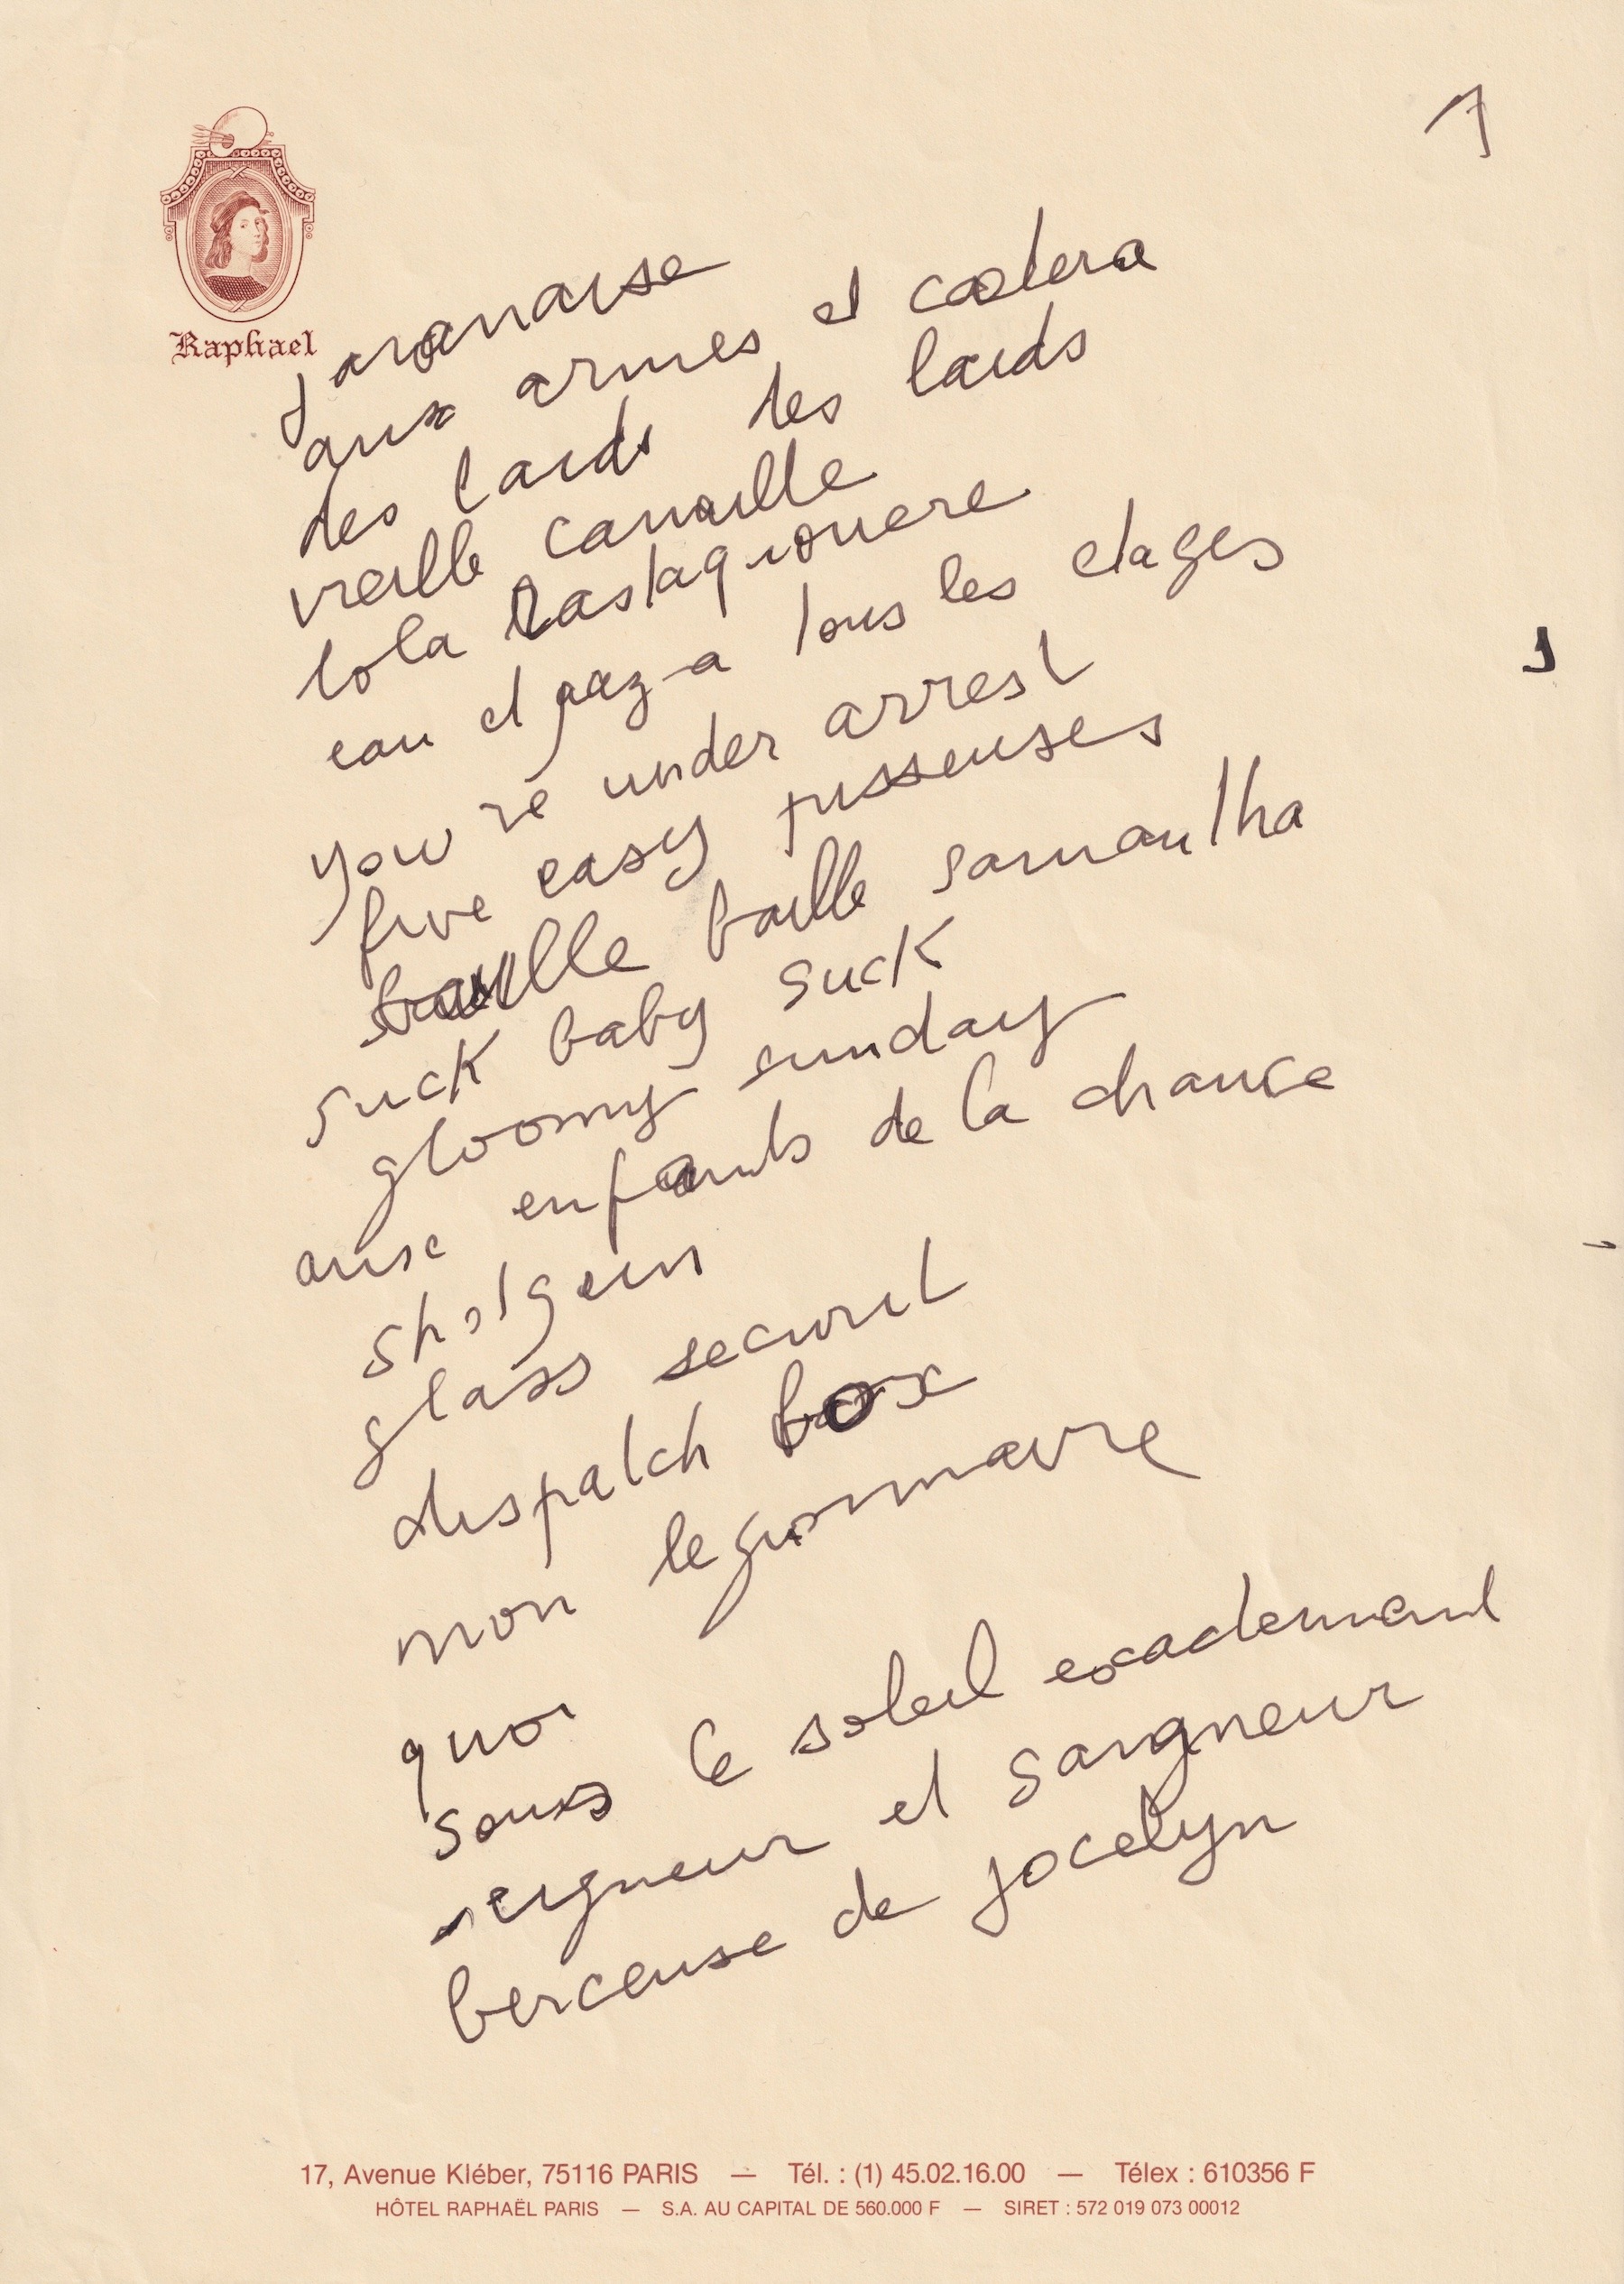 7
Raphael
javanaise
aux armes et caetera
des laids des laids
vieille canaille
lola rastaquouere
eau et gaz a tous les etages
you're under arrest
five easy pisseuses
baille baille samantha
suck baby suck
gloomy sunday
aux enfants de la chance
shotgun
glass securit
dispatch box
mon legionnaire
quoi
sous le soleil exactement
seigneur et saigneur
berceuse de jocelyn
17, Avenue Kléber, 75116 PARIS — Tél. : (1) 45.02.16.00 — Télex : 610356 F
HÔTEL RAPHAËL PARIS — S.A. AU CAPITAL DE 560.000 F — SIRET : 572 019 073 00012